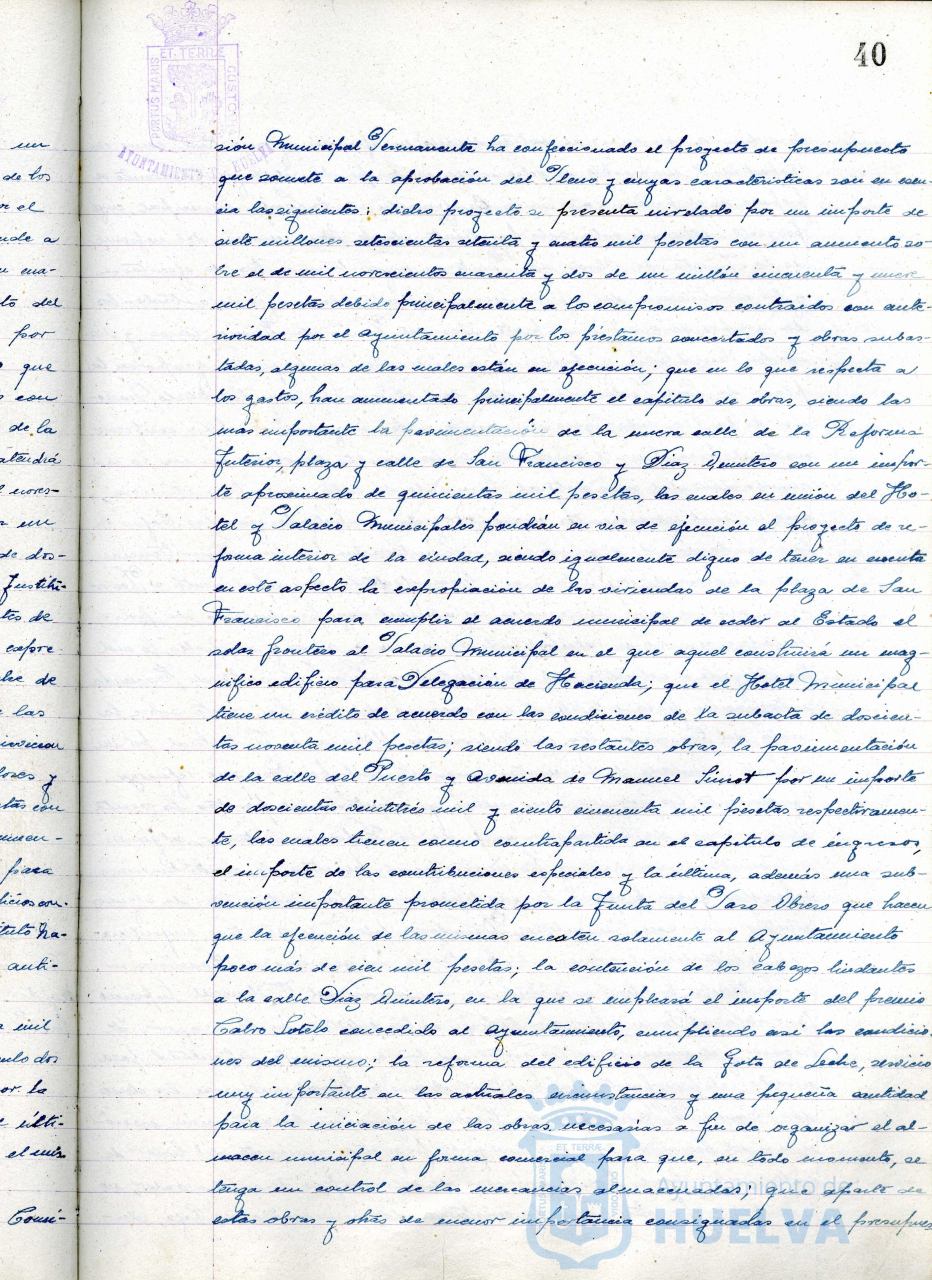 40
PORTUS MARIS ET TERRÆ CUSTO
AYUNTAMIENTO HUELVA
un
de los
por el
nde a
n cua-
to del
por
o que
s con
de la
atendrá
l nove-
r un
de dos-
Instiñ-
tes de
expre-
bre de
e las
nivicion
lores y
tas con
men-
para
ficios con-
tituto Na-
anti-
a mil
culo dos
or la
e últi-
el mis
Comi-
sión Municipal Permanente ha confeccionado el proyecto de presupuesto
que somete a la aprobación del Pleno y cuyas características son en esen-
cia las siguientes: dicho proyecto se presenta nivelado por un importe de
siete millones setecientas setenta y cuatro mil pesetas con un aumento so-
bre el de mil novecientos cuarenta y dos de un millón cincuenta y nueve
mil pesetas debido principalmente a los compromisos contraidos con ante-
rioridad por el Ayuntamiento por los préstamos concertados y obras subas-
tadas, algunas de las cuales están en ejecución; que en lo que respecta a
los gastos, han aumentado principalmente el capítulo de obras, siendo las
mas importante la pavimentación de la nueva calle de la Reforma
Interior, plaza y calle de San Francisco y Diaz Quintero con un impor-
te aproximado de quinientas mil pesetas, las cuales en unión del Ho-
tel y Palacio Municipales pondrán en via de ejecución el proyecto de re-
forma interior de la ciudad, siendo igualmente digno de tener en cuenta
en este aspecto la expropiación de las viviendas de la plaza de San
Francisco para cumplir el acuerdo municipal de ceder al Estado el
solar frontero al Palacio Municipal en el que aquel construirá un mag-
nifico edificio para Delegación de Hacienda; que el Hotel Municipal
tiene un crédito de acuerdo con las condiciones de la subasta de doscien-
tas noventa mil pesetas; siendo las restantes obras, la pavimentación
de la calle del Puerto y Avenida de Manuel Siurot por un importe
de doscientas veintitrés mil y ciento cincuenta mil pesetas respectivamen-
te, las cuales tienen como contrapartida en el capítulo de ingresos,
el importe de las contribuciones especiales y la última, además una sub-
vención importante prometida por la Junta del Paro Obrero que hacen
que la ejecución de las mismas encaten solamente al Ayuntamiento
poco más de cien mil pesetas; la contención de los cabezos lindantes
a la calle Diaz Quintero, en la que se empleará el importe del premio
Calvo Sotelo concedido al Ayuntamiento, cumpliendo así las condicio-
nes del mismo; la reforma del edificio de la Gota de Leche, servicio
muy importante en las actuales circunstancias y una pequeña cantidad
para la iniciación de las obras necesarias a fin de organizar el al-
macen municipal en forma comercial para que, en todo momento, se
tenga un control de las mercancias almacenadas; que aparte de
estas obras y otras de menor importancia consignadas en el presupues
ET TERRÆ
Ayuntamiento de
HUELVA